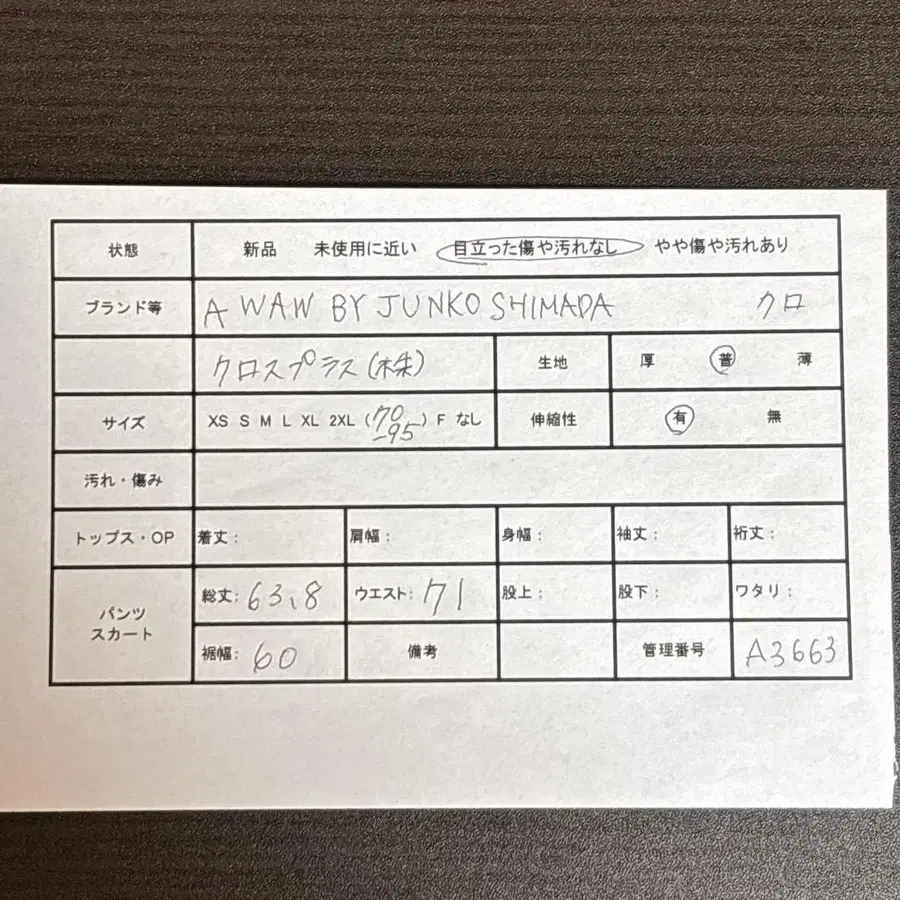 状態 新品 未使用に近い 目立った傷や汚れなし やや傷や汚れあり
ブランド等 A WAW BY JUNKO SHIMADA クロ
クロスプラス(株) 生地 厚 普 薄
サイズ XS S M L XL 2XL (70-95) F なし 伸縮性 有 無
汚れ・傷み
トップス・OP 着丈: 肩幅: 身幅: 袖丈: 裄丈:
パンツ スカート 総丈: 63.8 ウエスト: 71 股上: 股下: ワタリ:
裾幅: 60 備考 管理番号 A3663